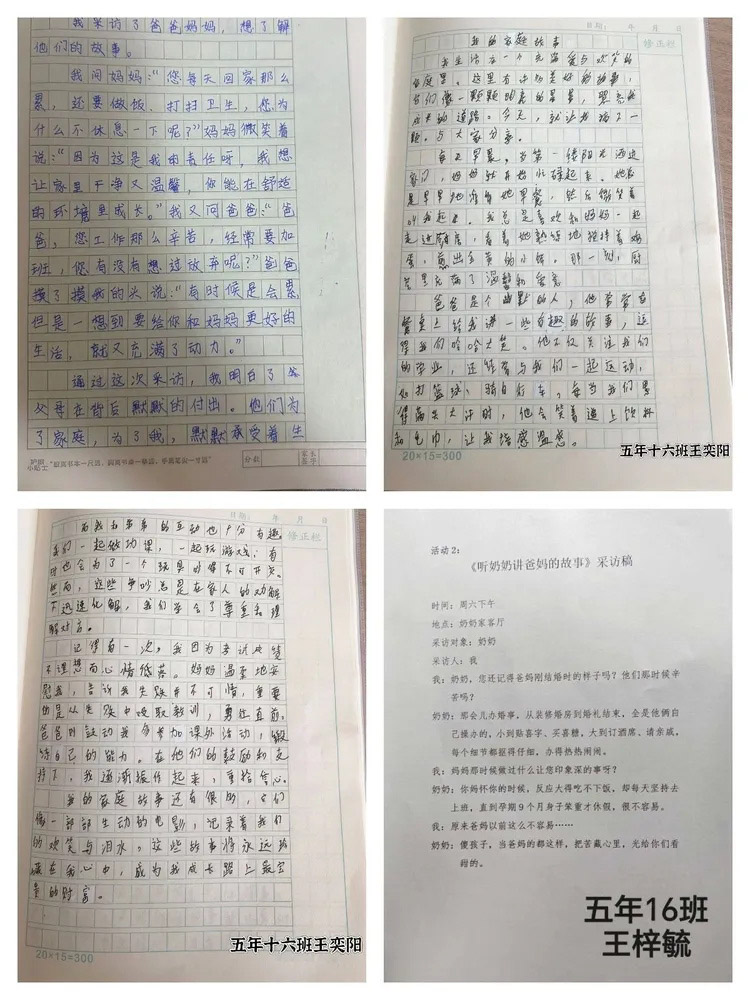 我采访了爸爸妈妈，想了解
他们的故事。
我问妈妈：“您每天回家那么
累，还要做饭、打扫卫生，您为
什么不休息一下呢？”妈妈微笑着
说：“因为这是我的责任呀，我想
让家里干净又温馨，你能在舒适
的环境里成长。”我又问爸爸：“爸
爸，您工作那么辛苦，经常要加
班，您有没有想过放弃呢？”爸爸
摸了摸我的头说：“有时候是会累
但是一想到要给你和妈妈更好的
生活，就又充满了动力。”
通过这次采访，我明白了爸
父母在背后默默的付出。他们为
了家庭，为了我，默默承受着生
护眼小贴士
“眼离书本一尺远，胸离书桌一拳远，手离笔尖一寸远”
分数
家长签字
日期： 年 月 日
修正栏
我的家庭故事
我生活在一个充满爱与欢笑的
家庭里。这里有许多美好的故事，
它们像一颗颗闪亮的星星，照亮我
成长的道路。今天，就让我摘下一
颗，与大家分享。
每天早晨，当第一缕阳光洒进
家门，妈妈就开始忙碌起来。她总
是早早地准备好早餐，然后微笑着
叫我起床。我总是喜欢和妈妈一起
走进厨房，看着她熟练地搅拌着鸡
蛋，煎出金黄的小饼，那一刻，厨
房里充满了温馨和爱意
爸爸是个幽默的人，他常常在
餐桌上给我讲一些有趣的故事，逗
得我们哈哈大笑。他不仅关注我们
的学业，还经常与我们一起运动，
如打篮球、骑自行车，每当我们累
得满头大汗时，他会笑着递上饮料
和毛巾，让我倍感温悠。
20×15=300
五年十六班王奕阳
日期： 年 月 日
修正栏
而我和弟弟的互动也十分有趣
我们一起做功课，一起玩游戏，有
时也会为了一个玩具吵得不可开交。
然而，这些争吵总是在家人的劝解
下迅速化解，我们学会了尊重和理
解对方。
记得有一次，我因为考试成绩
不理想而心情低落。妈妈温柔地安
慰我，告诉我失败并不可惜，重要
的是从失败中吸取教训，勇往直前。
爸爸则鼓动我多参加课外活动，锻
炼自己的能力。在他们的鼓励和支
持下，我逐渐振作起来，重拾信心。
我的家庭故事还有很多，它们
像一部部生动的电影，记录着我们
的欢笑与泪水。这些故事将永远珍
藏在我心中，成为我成长路上最宝
贵的财富。
20×15=300
五年十六班王奕阳
活动2：
《听奶奶讲爸妈的故事》采访稿
时间：周六下午
地点：奶奶家客厅
采访对象：奶奶
采访人：我
我：奶奶，您还记得爸妈刚结婚时的样子吗？他们那时候辛
苦吗？
奶奶：那会儿办婚事，从装修婚房到婚礼结束，全是他俩自
己操办的，小到贴喜字、买喜糖，大到订酒席、请亲戚，
每个细节都抠得仔细，办得热热闹闹。
我：妈妈那时候做过什么让您印象深的事呀？
奶奶：你妈怀你的时候，反应大得吃不下饭，却每天坚持去
上班，直到孕期9个月身子笨重才休假，很不容易。
我：原来爸妈以前这么不容易……
奶奶：傻孩子，当爸妈的都这样，把苦藏心里，光给你们看
甜的。
五年16班
王梓毓